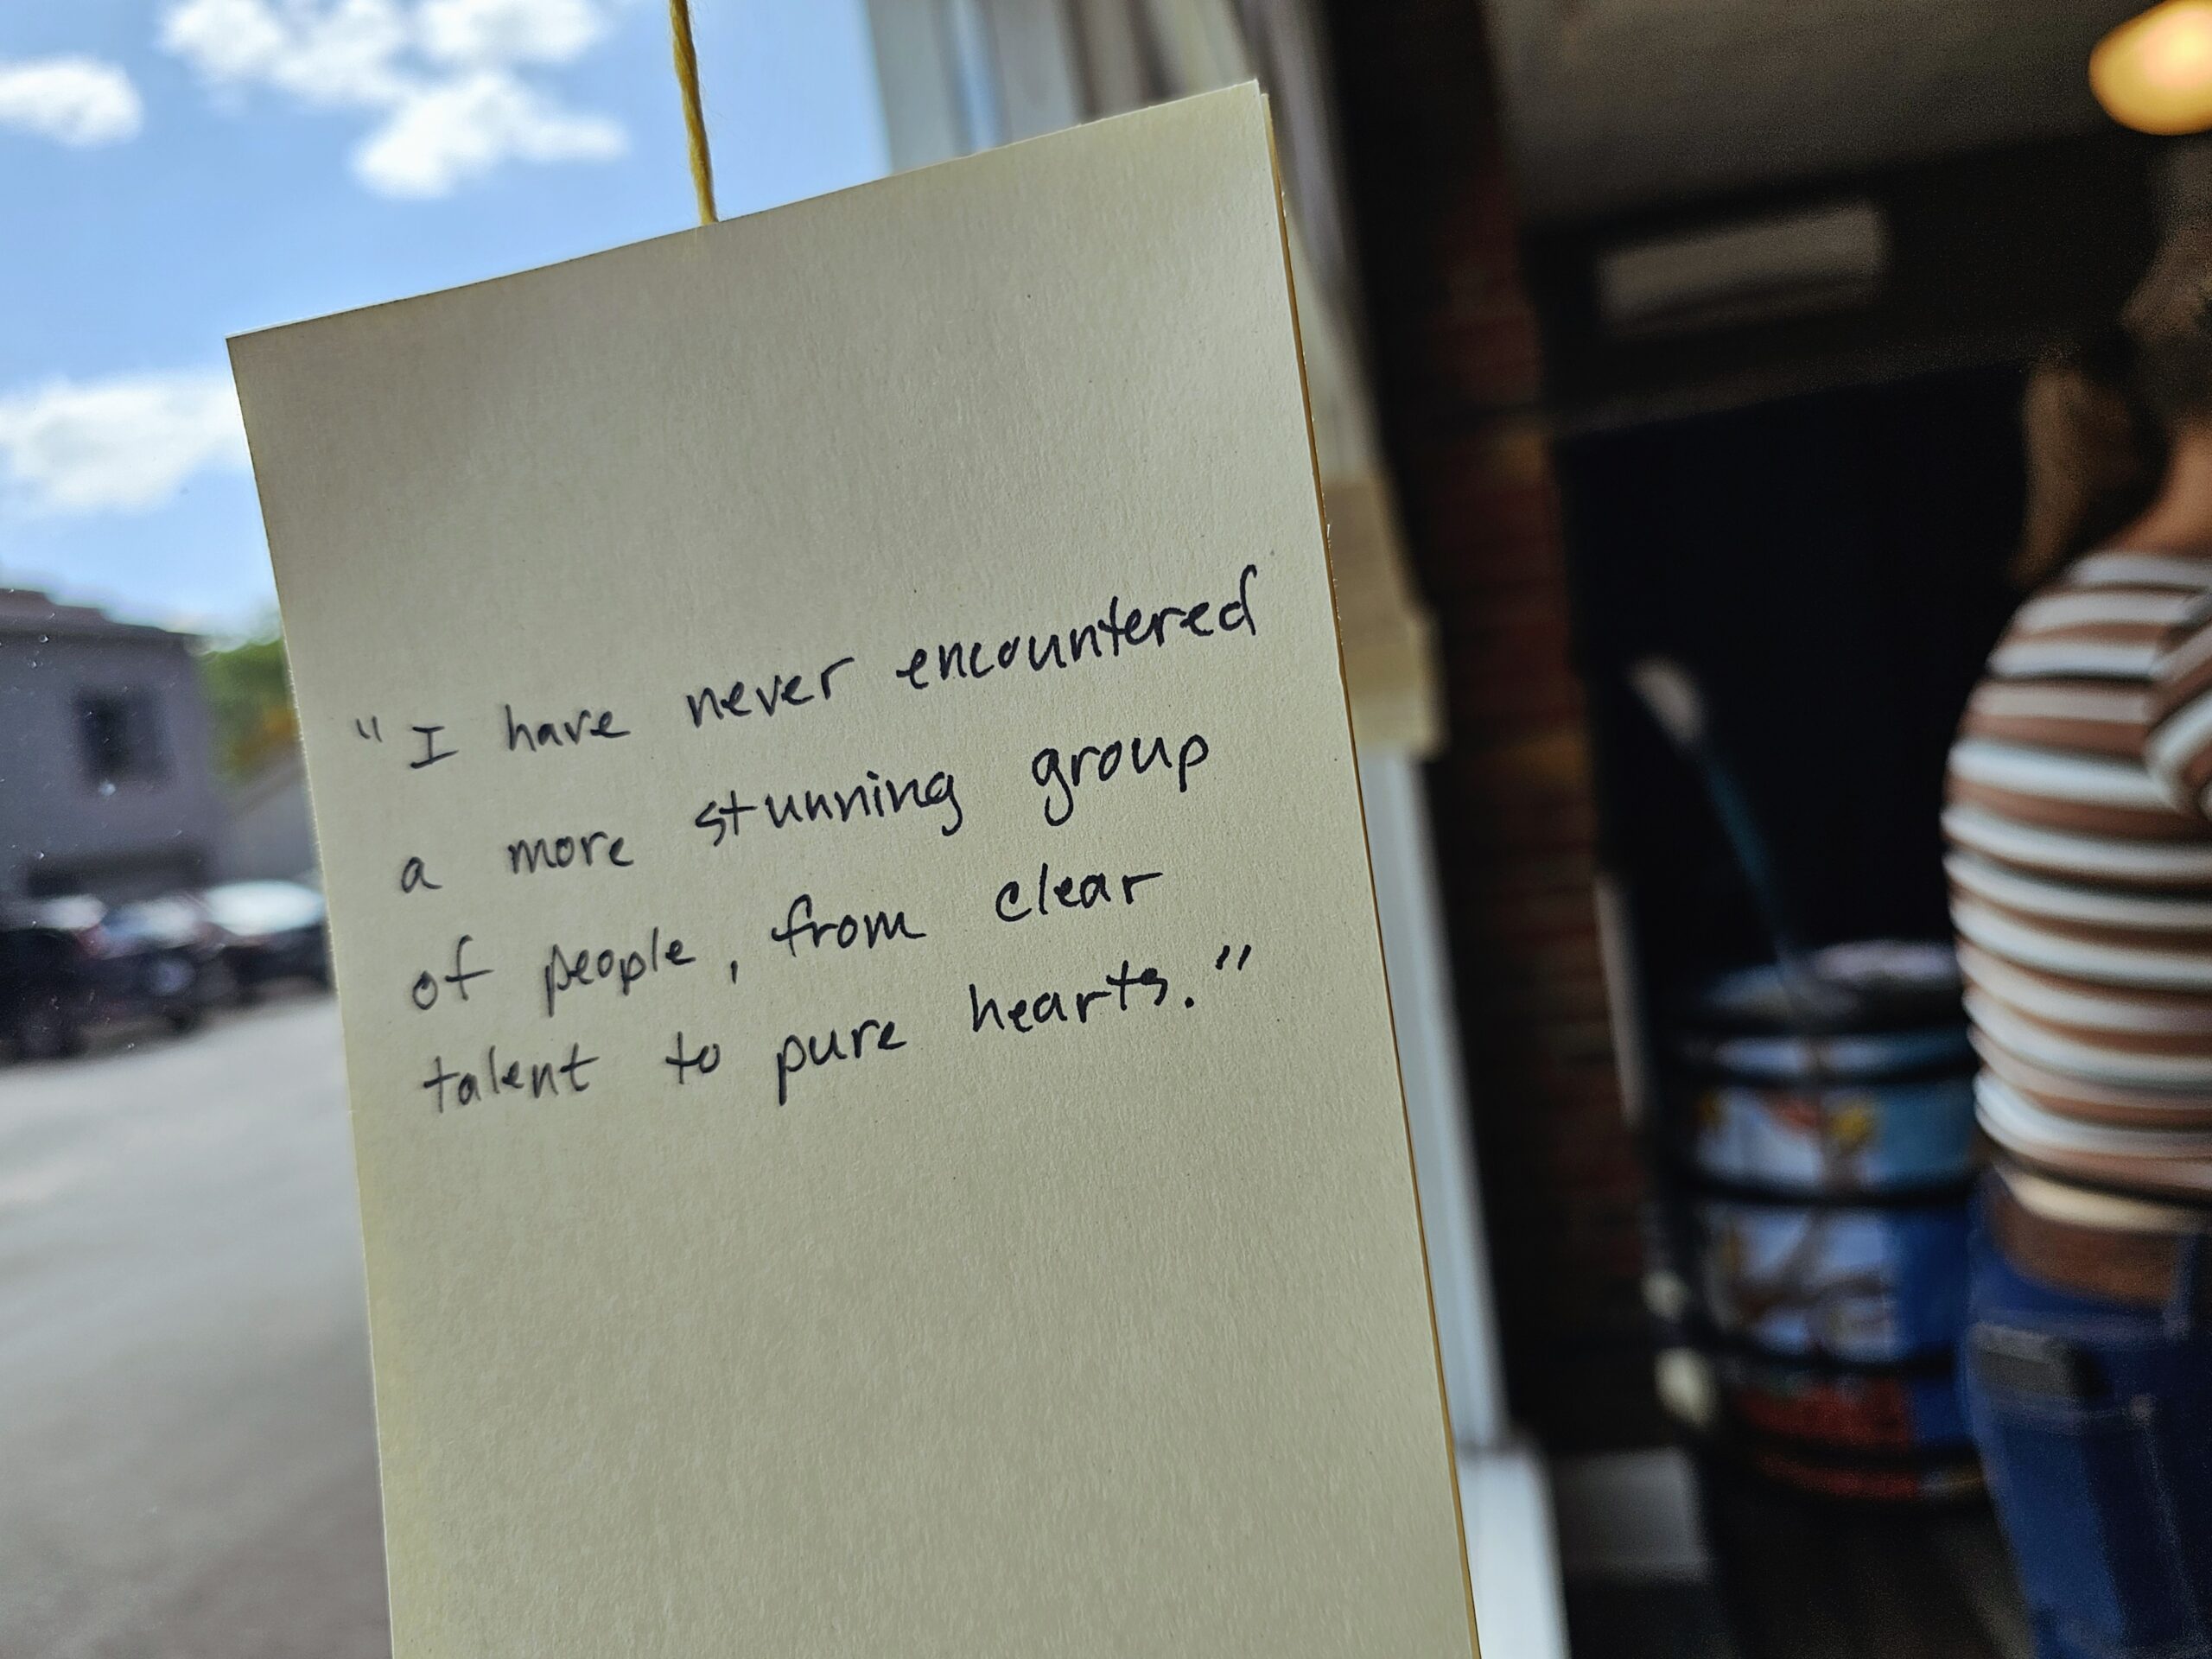 "I have never encountered
a more stunning group
of people, from clear
talent to pure hearts."